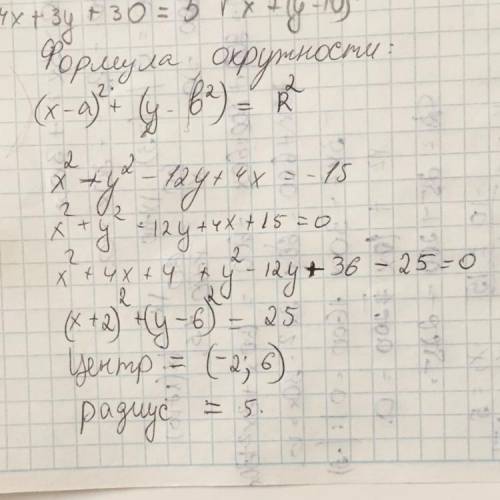 4x + 3y + 30 = 5
Формула окружности:
(x - a)² + (y - b²) = R²
x² + y² - 12y + 4x = -15
x² + y² - 12y + 4x + 15 = 0
x² + 4x + 4 + y² - 12y + 36 - 25 = 0
(x + 2)² + (y - 6)² = 25
Центр = (-2; 6)
радиус = 5.